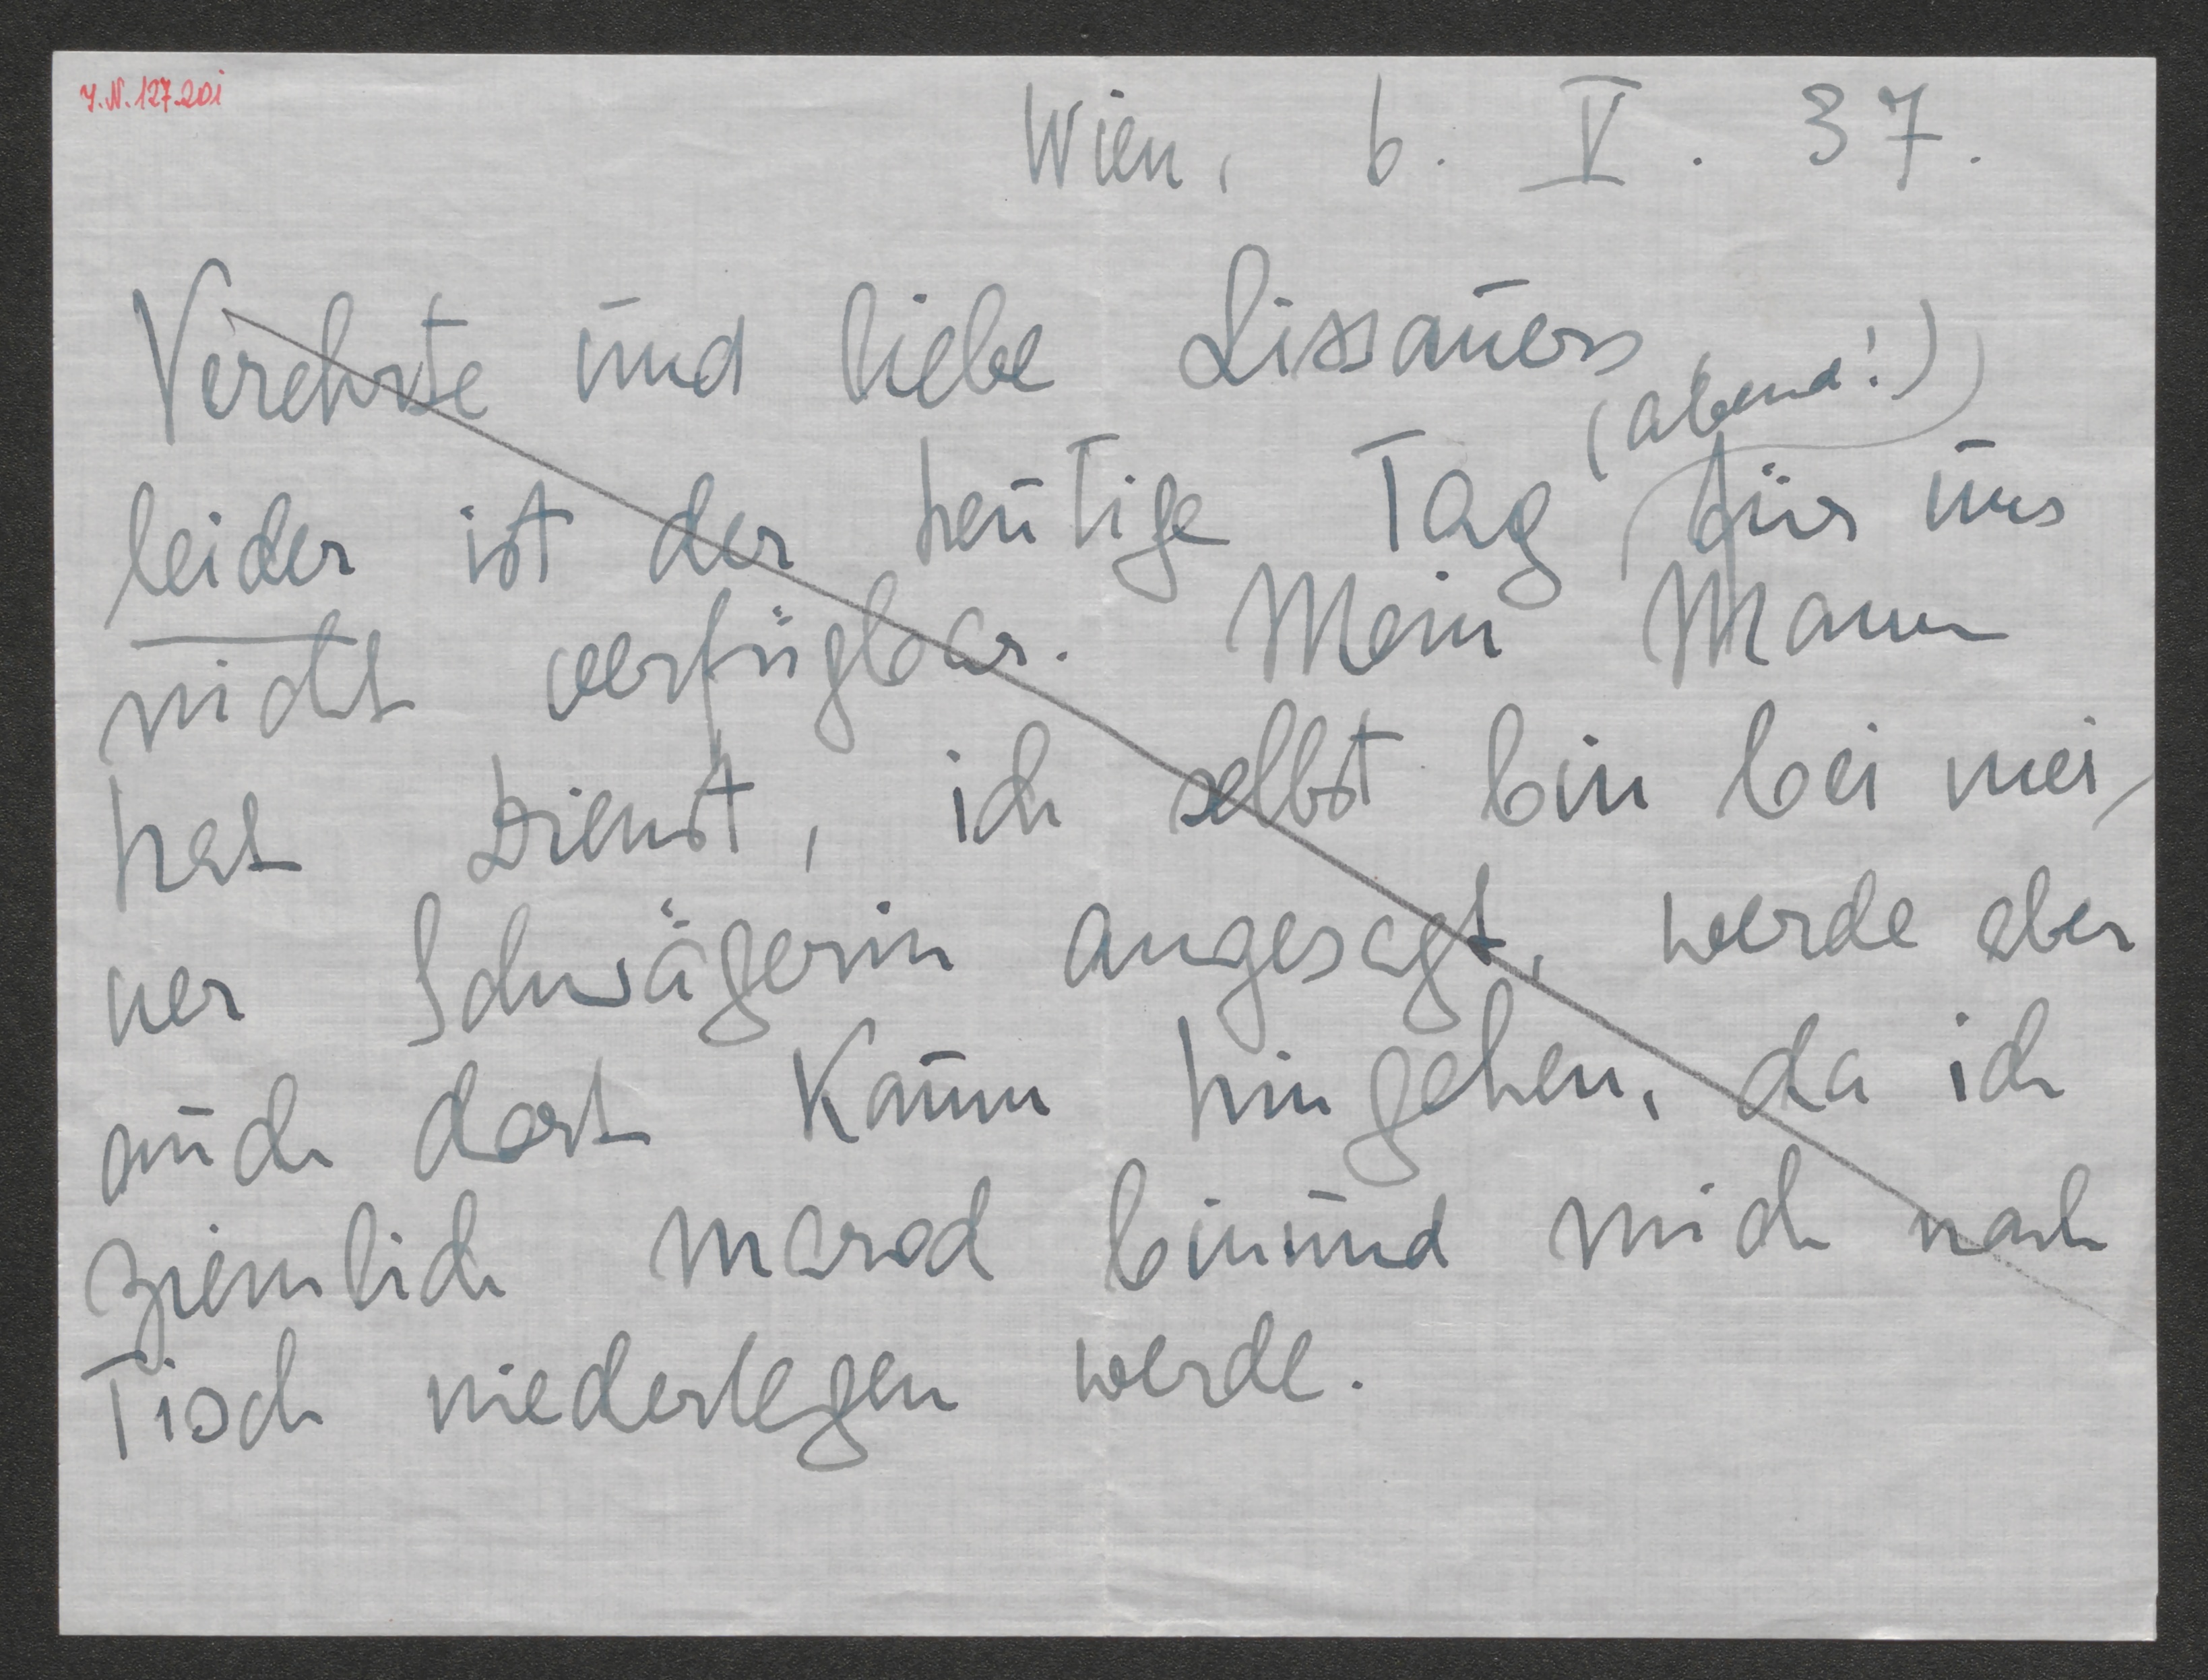 J.N. 127.201
Wien, 6. V. 37.
Verehrte und liebe Lissauers
(abend!)
leider ist der heutige Tag für uns
nicht verfügbar. Mein Mann
hat Dienst, ich selbst bin bei mei-
ner Schwägerin angesagt, werde aber
auch dort kaum hingehen, da ich
ziemlich marod bin und mich nach
Tisch niederlegen werde.